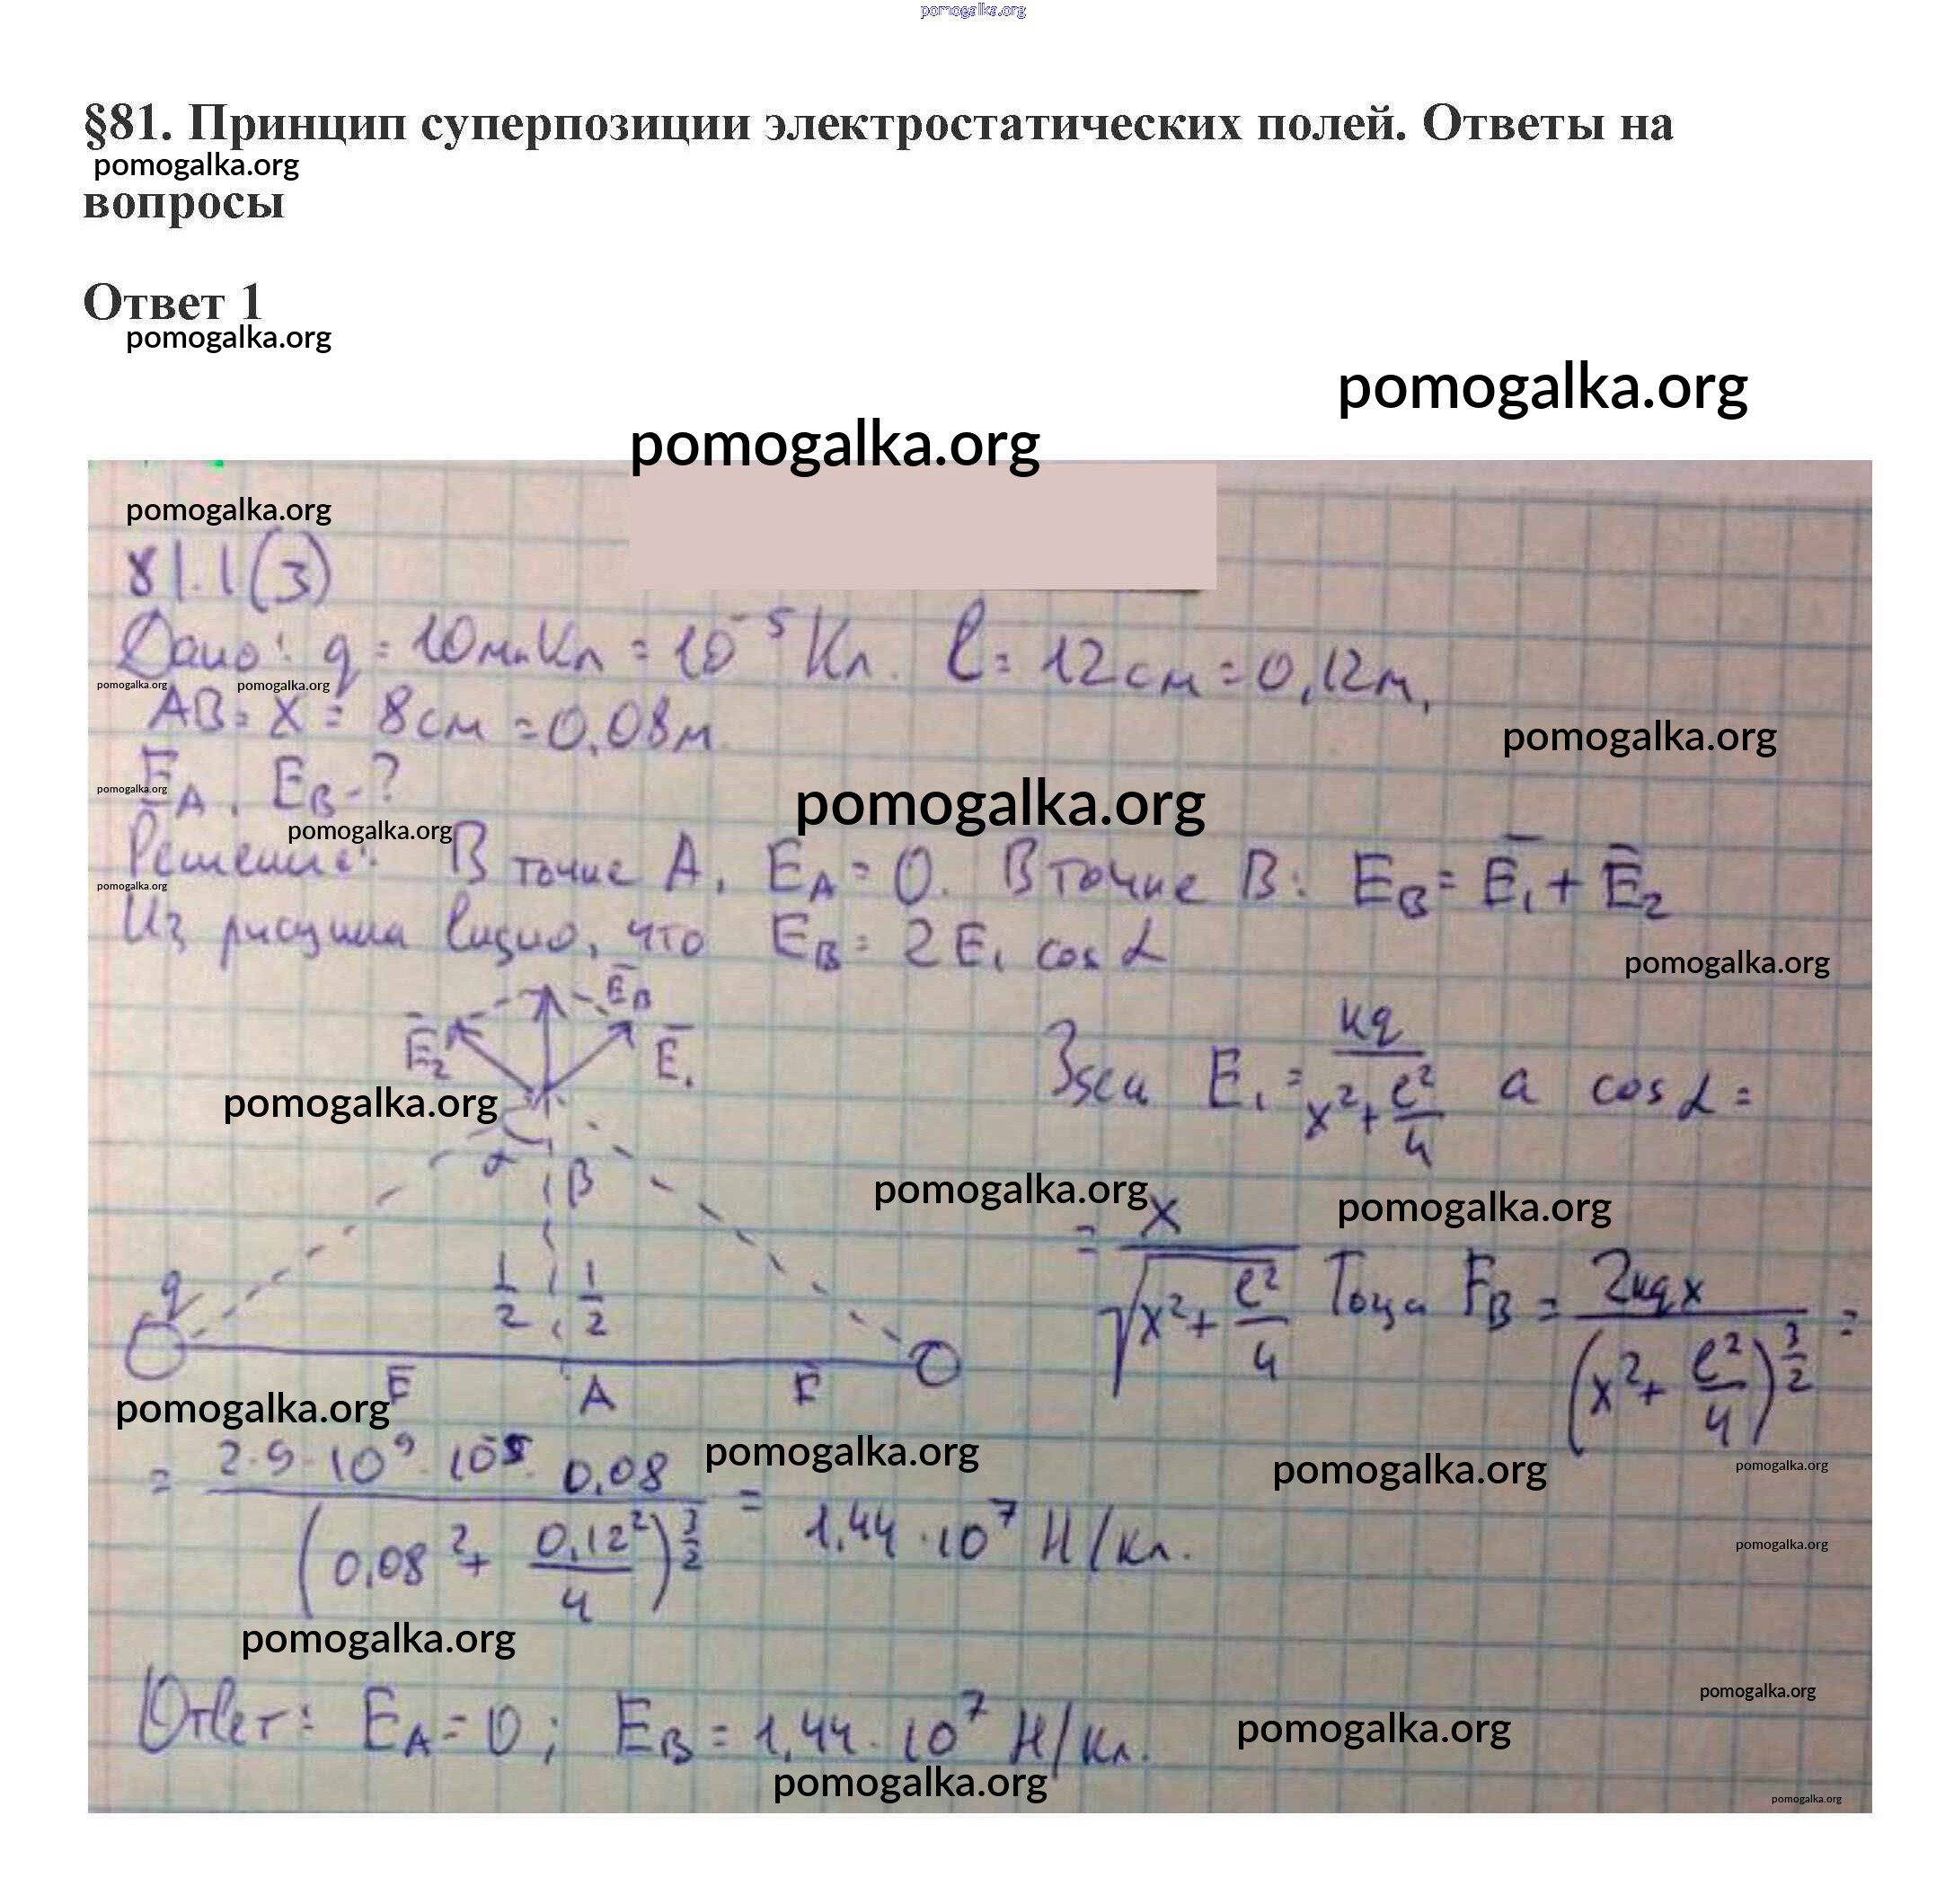 pomogalka.org
§81. Принцип суперпозиции электростатических полей. Ответы на
pomogalka.org
вопросы
Ответ 1
pomogalka.org
pomogalka.org
pomogalka.org
pomogalka.org
81.1(3)
Дано: q = 10мкКл = 10⁻⁵ Кл. l = 12 см = 0,12м,
pomogalka.org pomogalka.org
AB = x = 8 см = 0,08м
pomogalka.org
E̅A, EB - ?
pomogalka.org
pomogalka.org
pomogalka.org
Решение: В точке A, EA = 0. В точке B: EB = E̅1 + E̅2
pomogalka.org
Из рисунка видно, что EB = 2E1 cos α
pomogalka.org
E̅B
E̅2 E̅1
Здесь E1 = kq / (x² + l²/4) а cos α =
pomogalka.org
α B
pomogalka.org pomogalka.org
= x / √(x² + l²/4) Тогда EB = 2kqx / (x² + l²/4)^(3/2) =
q 1/2 1/2
E̅ A E̅
pomogalka.org
pomogalka.org pomogalka.org pomogalka.org
= 2·9·10⁹·10⁻⁵·0,08 / (0,08² + 0,12²/4)^(3/2) = 1,44·10⁷ Н/Кл.
pomogalka.org
pomogalka.org
pomogalka.org
Ответ: EA = 0; EB = 1,44·10⁷ Н/Кл.
pomogalka.org
pomogalka.org
pomogalka.org